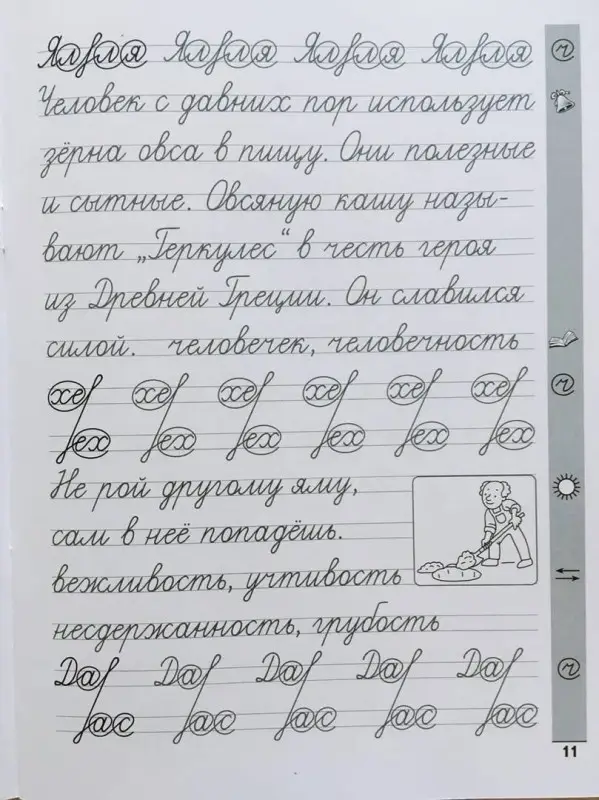 Ял ля Ял ля Ял ля Ял ля
Человек с давних пор использует
зёрна овса в пищу. Они полезные
и сытные. Овсяную кашу назы-
вают „Геркулес“ в честь героя
из Древней Греции. Он славился
силой. человечек, человечность
хе хе хе хе хе хе
ех ех ех ех ех ех
Не рой другому яму,
сам в неё попадёшь.
вежливость, учтивость
несдержанность, грубость
Да Да Да Да Да
ас ас ас ас ас
11